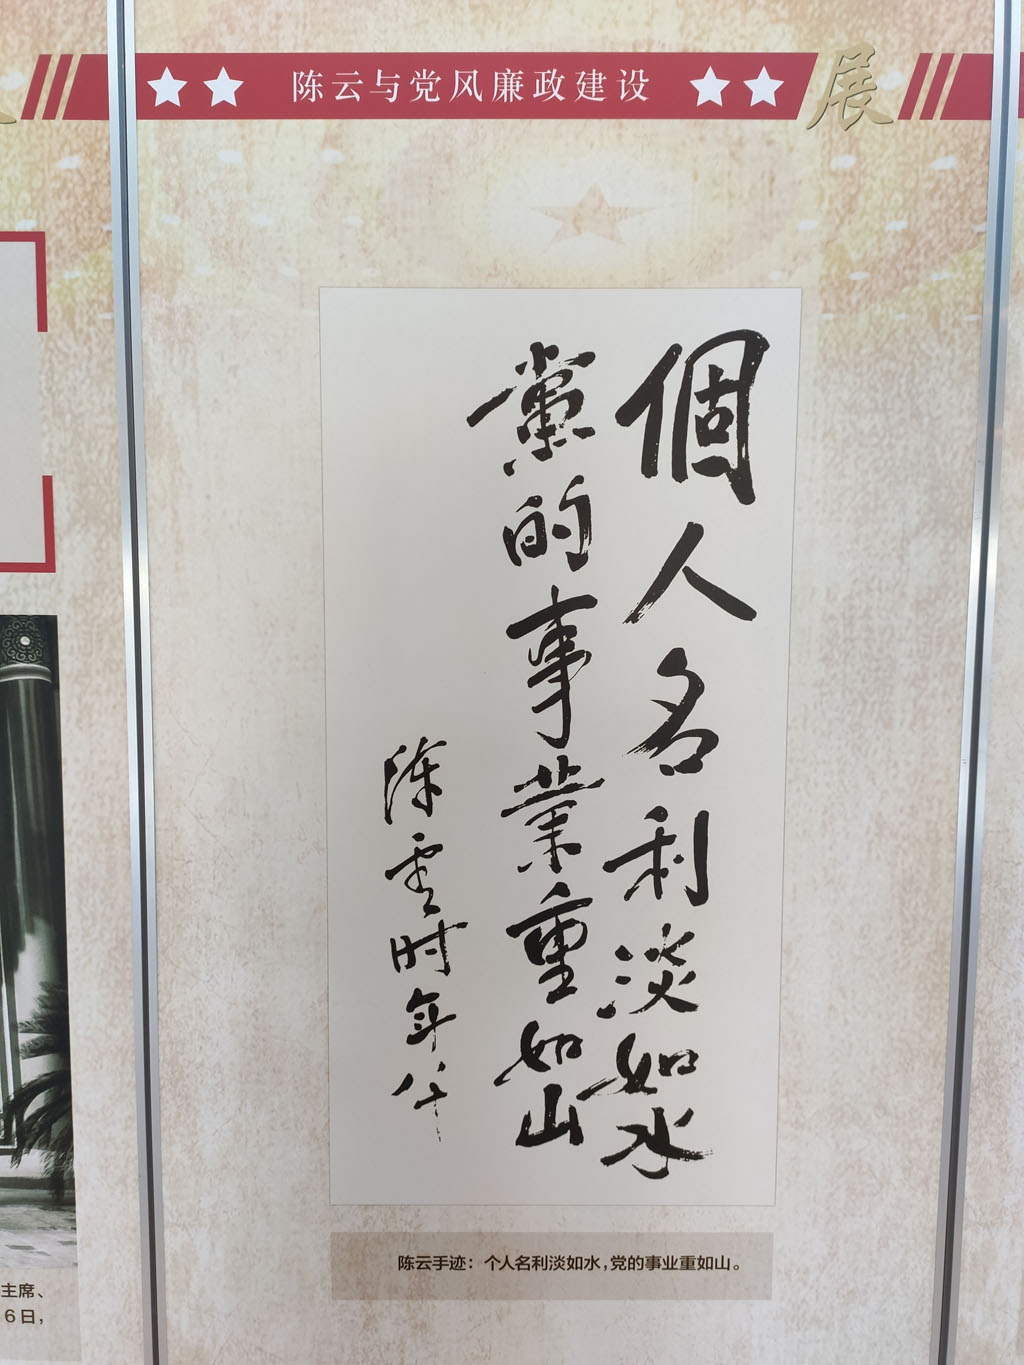 陈云与党风廉政建设
展
個人名利淡如水
黨的事業重如山
陈雲时年八十
陈云手迹：个人名利淡如水，党的事业重如山。
主席、
6日，